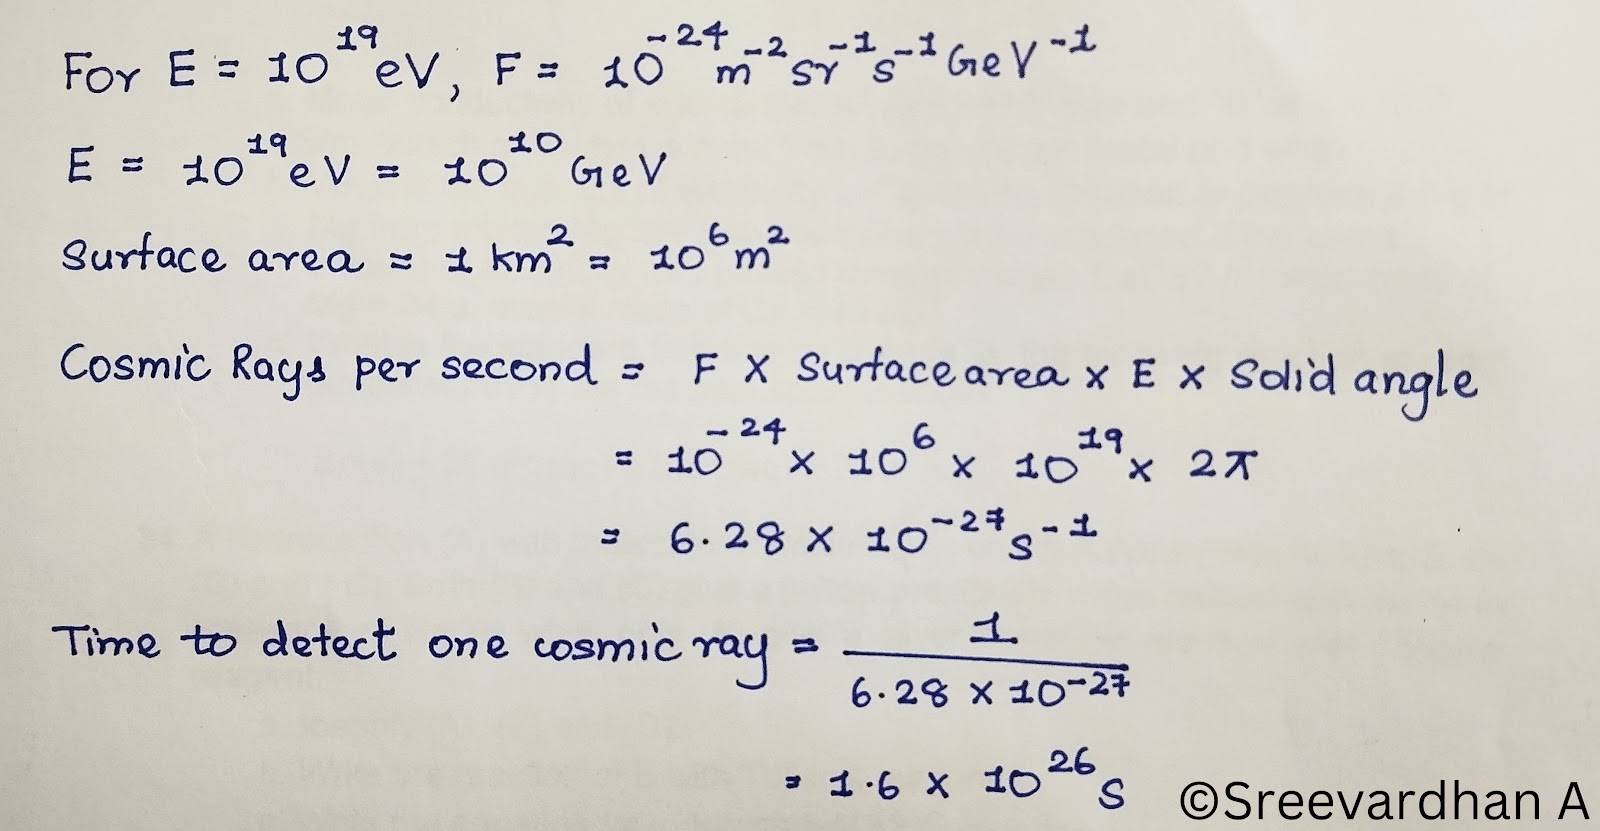 For E = 10¹⁹eV, F = 10⁻²⁴m⁻²sr⁻¹s⁻¹GeV⁻¹
E = 10¹⁹eV = 10¹⁰GeV
Surface area = 1 km² = 10⁶m²
Cosmic Rays per second = F X Surface area x E x Solid angle
= 10⁻²⁴ x 10⁶ x 10¹⁹ x 2π
= 6.28 x 10⁻²⁷s⁻¹
Time to detect one cosmic ray = 1 / 6.28 x 10⁻²⁷
= 1.6 x 10²⁶s
©Sreevardhan A